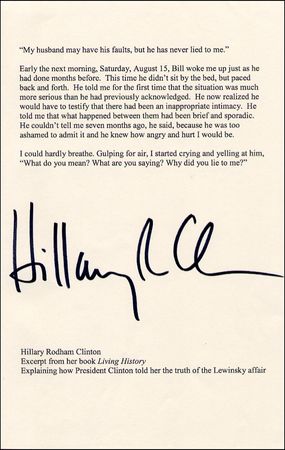 “My husband may have his faults, but he has never lied to me.”
Early the next morning, Saturday, August 15, Bill woke me up just as he
had done months before.  This time he didn’t sit by the bed, but paced
back and forth.  He told me for the first time that the situation was much
more serious than he had previously acknowledged.  He now realized he
would have to testify that there had been an inappropriate intimacy.  He
told me that what happened between them had been brief and sporadic.
He couldn’t tell me seven months ago, he said, because he was too
ashamed to admit it and he knew how angry and hurt I would be.
I could hardly breathe. Gulping for air, I started crying and yelling at him,
“What do you mean? What are you saying? Why did you lie to me?”
Hillary R Cl
Hillary Rodham Clinton
Excerpt from her book Living History
Explaining how President Clinton told her the truth of the Lewinsky affair